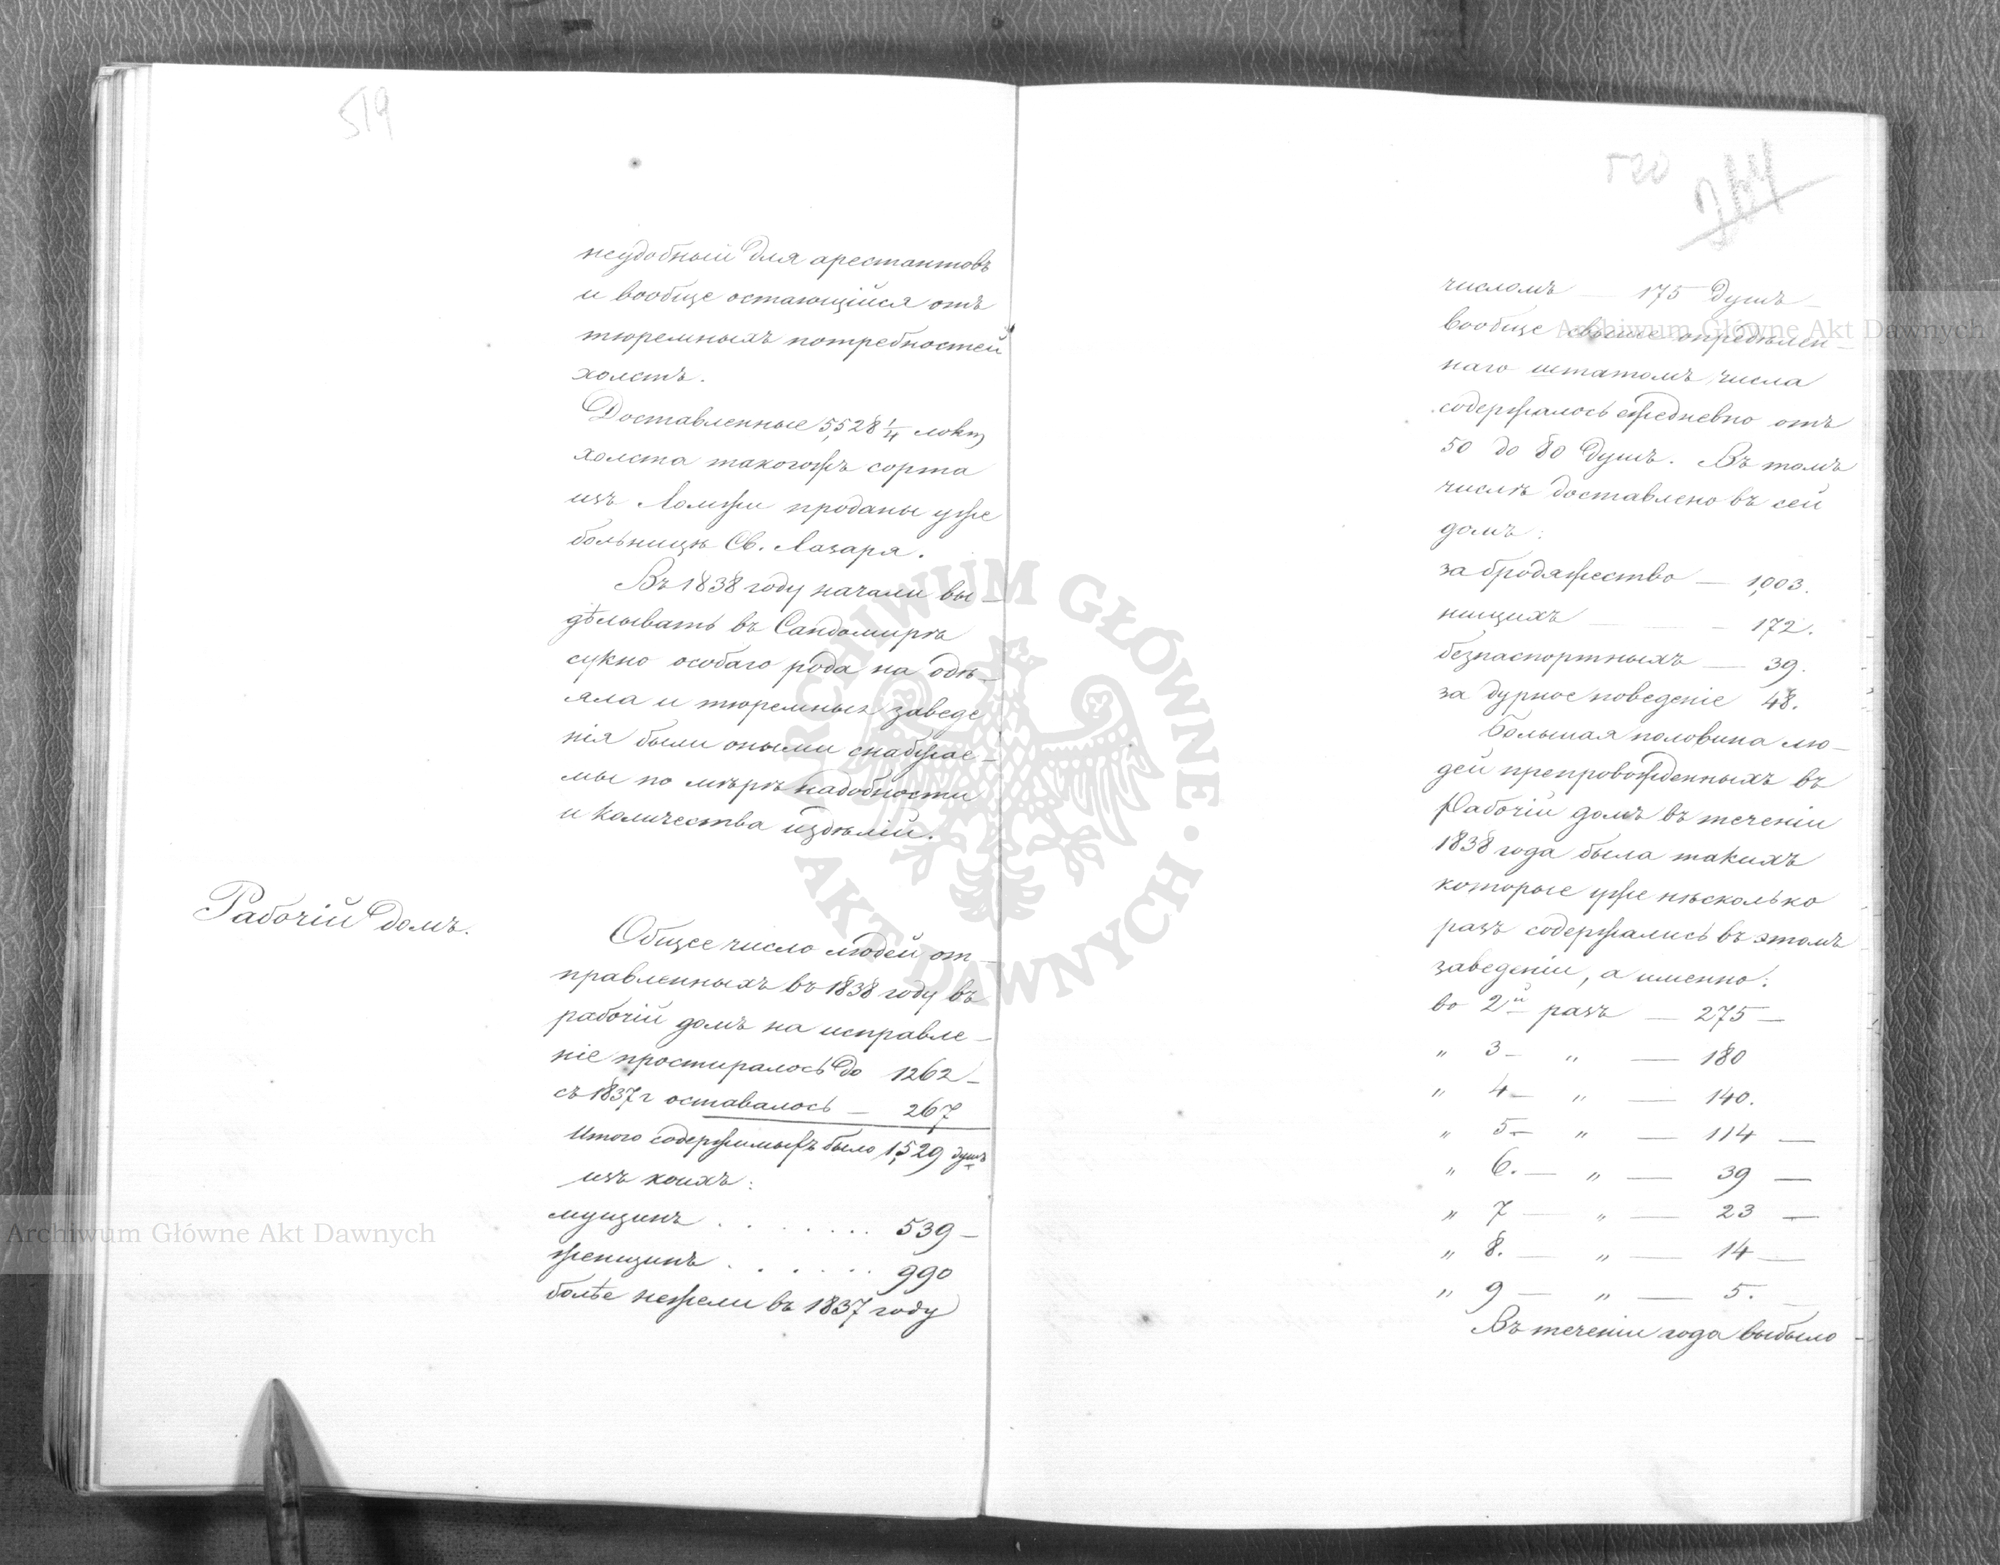 519
неудобный для арестантовъ
и вообще остающійся отъ
тюремныхъ потребностей
холстъ.
Доставленные 5,528 1/4 локт
холста такогожъ сорта
изъ Ломжи проданы уже
больницѣ Св. Лазаря.
Въ 1838 году начали вы-
дѣлывать въ Сандомирѣ
сукно особаго рода на одѣ-
яла и тюремныя заведе
нія были оными снабжае-
мы по мѣрѣ надобности
и количества издѣлій.
Рабочій домъ.
Общее число людей от-
правленныхъ въ 1838 году въ
рабочій домъ на исправле-
ніе простиралось до 1262 -
съ 1837 г оставалось — 267
Итого содержимыхъ было 1,529 душъ
изъ коихъ:
мущинъ . . . . . . . 539 -
женщинъ . . . . . . 990
болѣе нежели въ 1837 году
520
264
числомъ — 175 душъ -
вообще свыше опредѣлен-
наго штатомъ числа
содержалось ежедневно отъ
50 до 80 душъ. Въ томъ
числѣ доставлено въ сей
домъ:
за бродяжество — 1,003.
нищихъ — — - 172.
безпаспортныхъ — 39.
за дурное поведеніе 48.
Большая половина лю-
дей препровожденныхъ въ
Рабочій домъ въ теченіи
1838 года была такихъ
которые уже нѣсколько
разъ содержались въ этомъ
заведеніи, а именно:
во 2й разъ — 275 —
" 3 - " — 180
" 4 - " — 140.
" 5 - " — 114 —
" 6. — " — 39 —
" 7 — " — 23 —
" 8. — " — 14 —
" 9 — " — 5.
Въ теченіи года выбыло
Archiwum Główne Akt Dawnych
Archiwum Główne Akt Dawnych
ARCHIWUM GŁÓWNE · AKT DAWNYCH ·